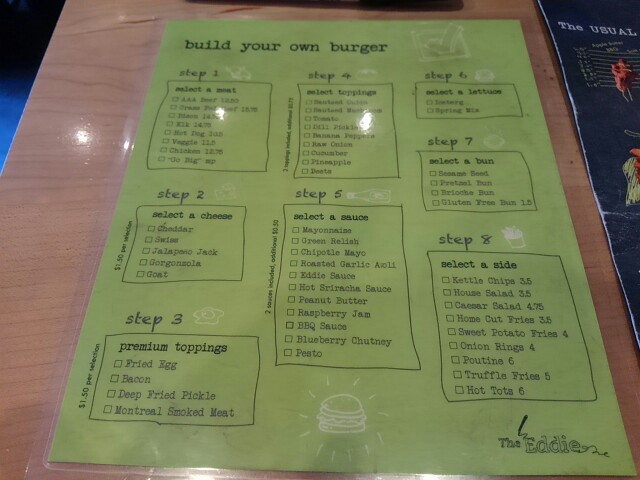 build your own burger
step 1
select a meat
AAA Beef
Grass Fed Beef 15.75
Bison
Elk 14.75
Hot Dog
Veggie 11.5
Chicken 12.75
"Go Big" mp
step 2
select a cheese
$1.50 per selection
Cheddar
Swiss
Jalapeno Jack
Gorgonzola
Goat
step 3
premium toppings
$1.50 per selection
Fried Egg
Bacon
Deep Fried Pickle
Montreal Smoked Meat
step 4
select toppings
2 toppings included, additional
Sauteed Onion
Sauteed Mushroom
Tomato
Dill Pickle
Banana Peppers
Raw Onion
Cucumber
Pineapple
Beets
step 5
select a sauce
2 sauces included, additional $0.50
Mayonnaise
Green Relish
Chipotle Mayo
Roasted Garlic Aioli
Eddie Sauce
Hot Sriracha Sauce
Peanut Butter
Raspberry Jam
BBQ Sauce
Blueberry Chutney
Pesto
step 6
select a lettuce
Iceberg
Spring Mix
step 7
select a bun
Sesame Seed
Pretzel Bun
Brioche Bun
Gluten Free Bun 1.5
step 8
select a side
Kettle Chips 3.5
House Salad 3.5
Caesar Salad 4.75
Home Cut Fries 3.5
Sweet Potato Fries 4
Onion Rings 4
Poutine 6
Truffle Fries 5
Hot Tots 6
The Eddie
The USUAL